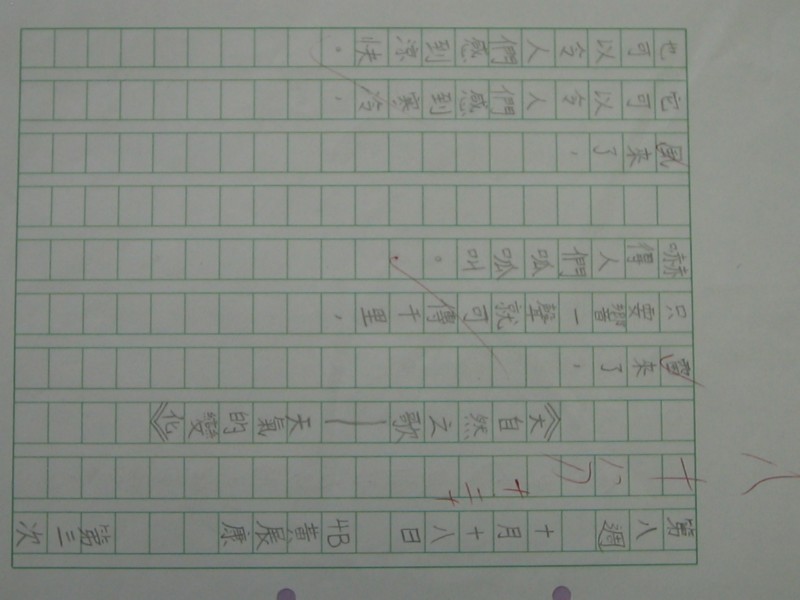 第八週 十月十八日 4B黃展康 第三次
《大自然之歌——天氣的變化》
雷來了，
只要響一聲就可傳千里，
嚇得人們呱呱叫。
風來了，
它可以令人們感到寒冷，
也可以令人們感到涼快。